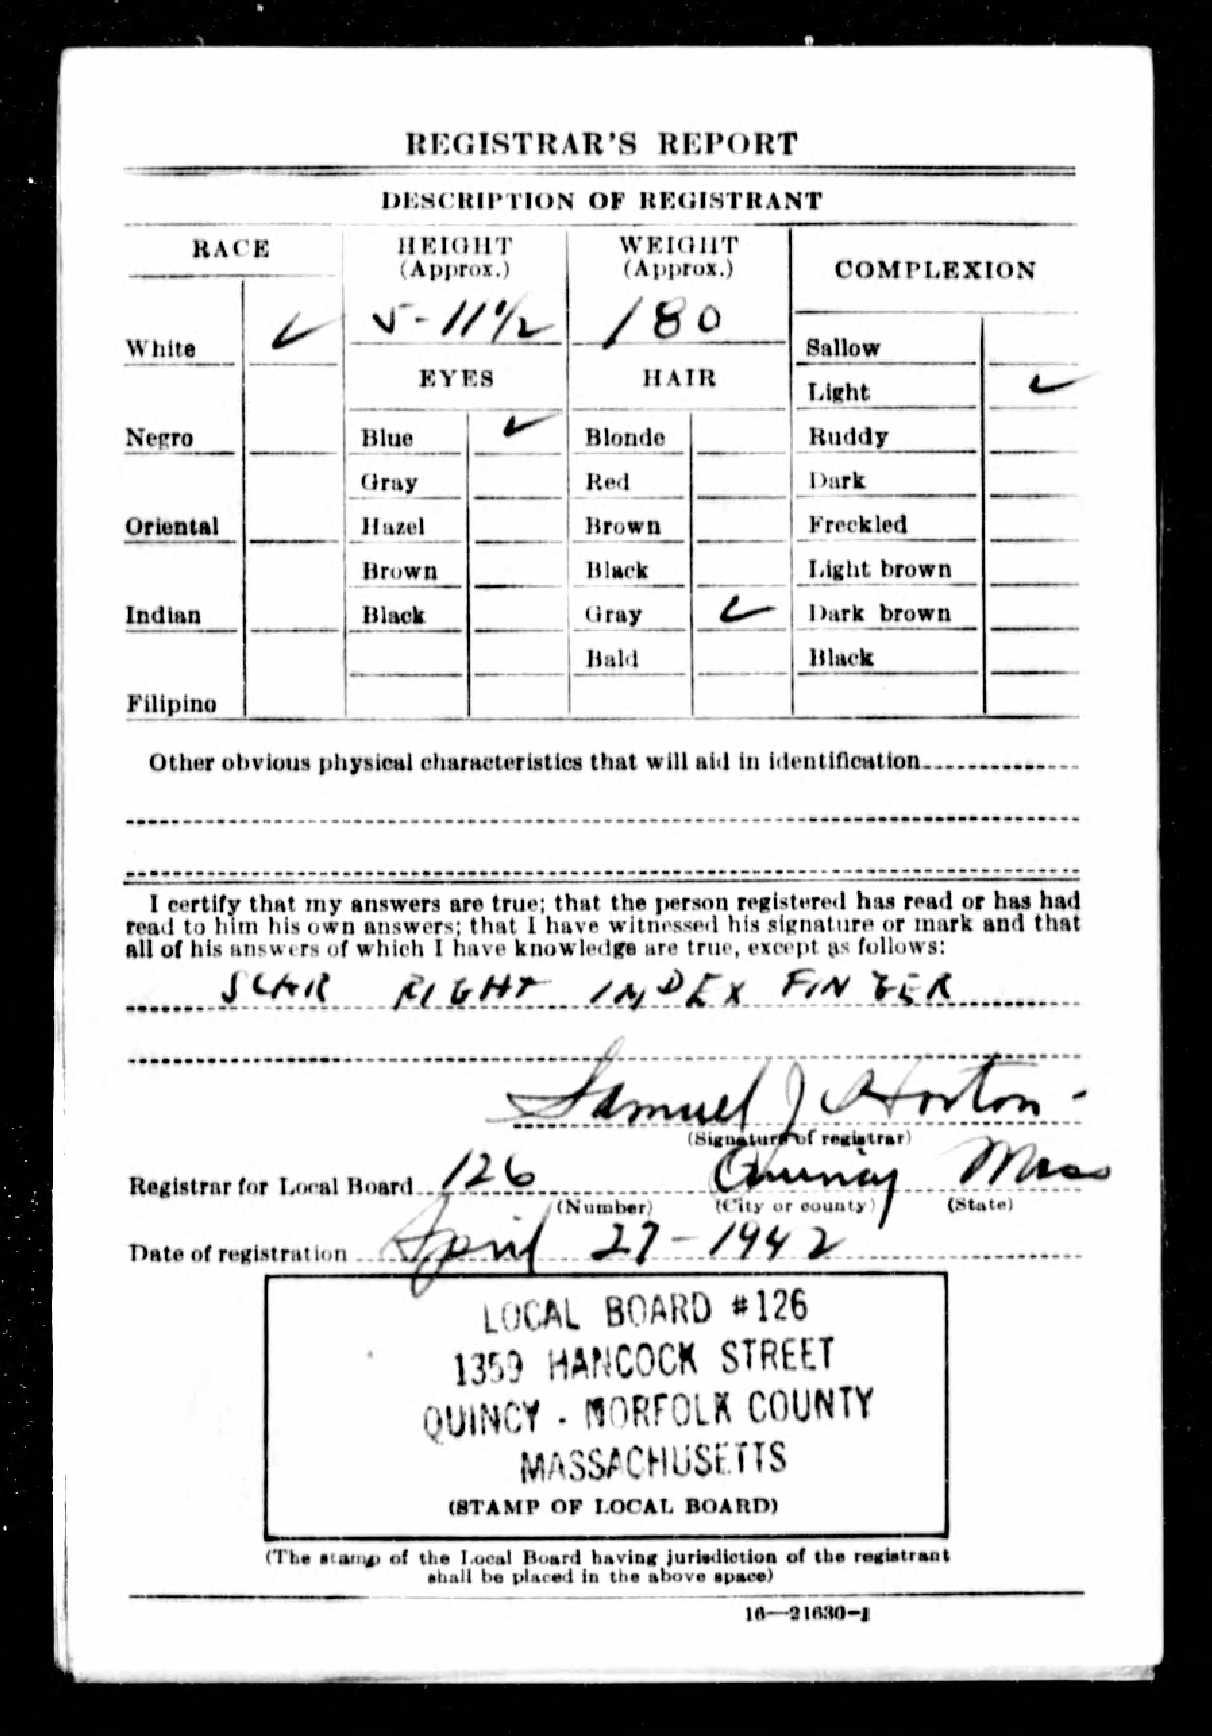 REGISTRAR'S REPORT
DESCRIPTION OF REGISTRANT
RACE
HEIGHT
(Approx.)
WEIGHT
(Approx.)
COMPLEXION
5-11½
180
White ✓
Sallow
EYES
HAIR
Light ✓
Negro
Blue ✓
Blonde
Ruddy
Gray
Red
Dark
Oriental
Hazel
Brown
Freckled
Brown
Black
Light brown
Indian
Black
Gray ✓
Dark brown
Bald
Black
Filipino
Other obvious physical characteristics that will aid in identification
I certify that my answers are true; that the person registered has read or has had
read to him his own answers; that I have witnessed his signature or mark and that
all of his answers of which I have knowledge are true, except as follows:
SCAR RIGHT INDEX FINGER
Samuel J Horton
(Signature of registrar)
Registrar for Local Board 126 Quincy Mass
(Number) (City or county) (State)
Date of registration April 27-1942
LOCAL BOARD #126
1359 HANCOCK STREET
QUINCY - NORFOLK COUNTY
MASSACHUSETTS
(STAMP OF LOCAL BOARD)
(The stamp of the Local Board having jurisdiction of the registrant
shall be placed in the above space)
16—21630-1